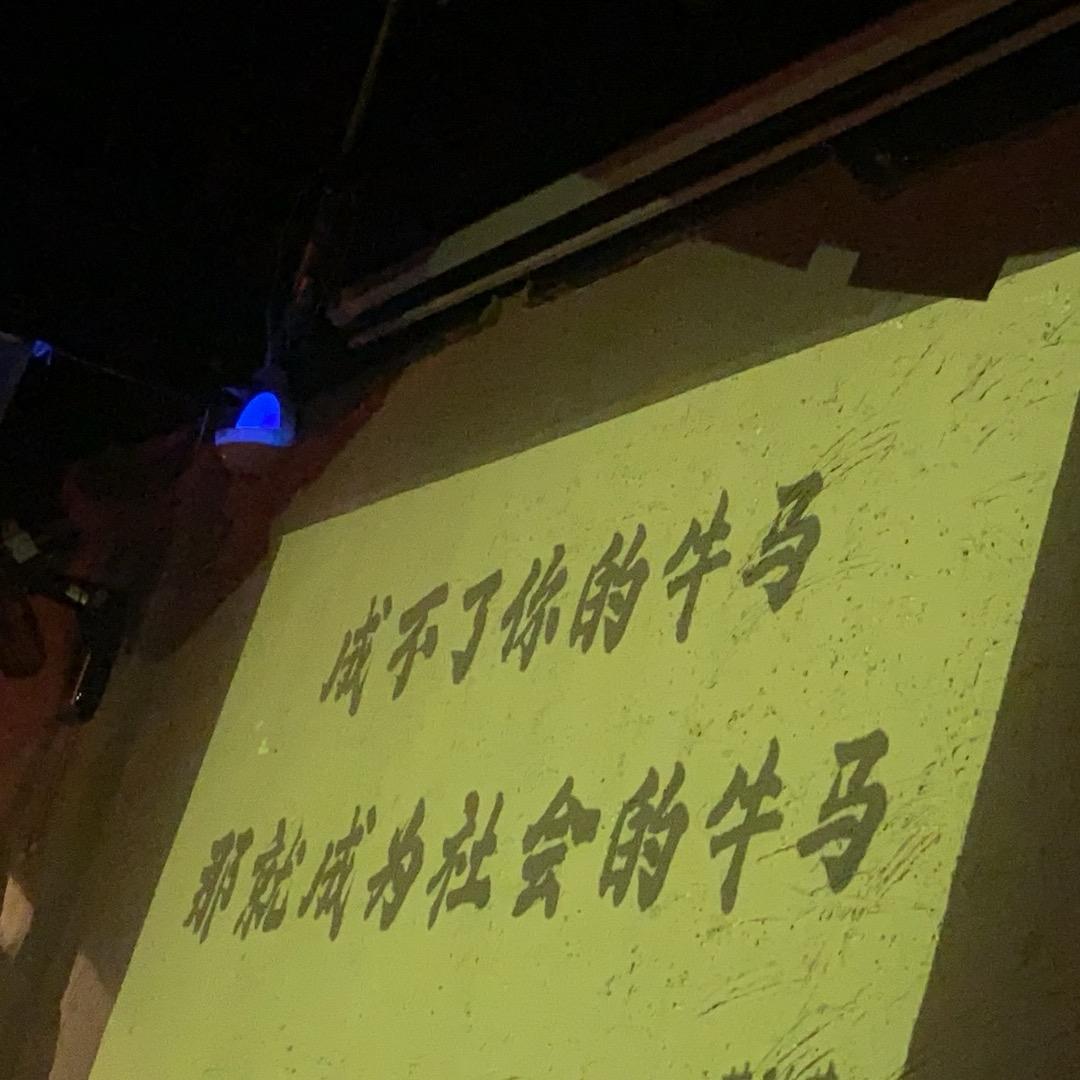 成不了你的牛马
那就成为社会的牛马